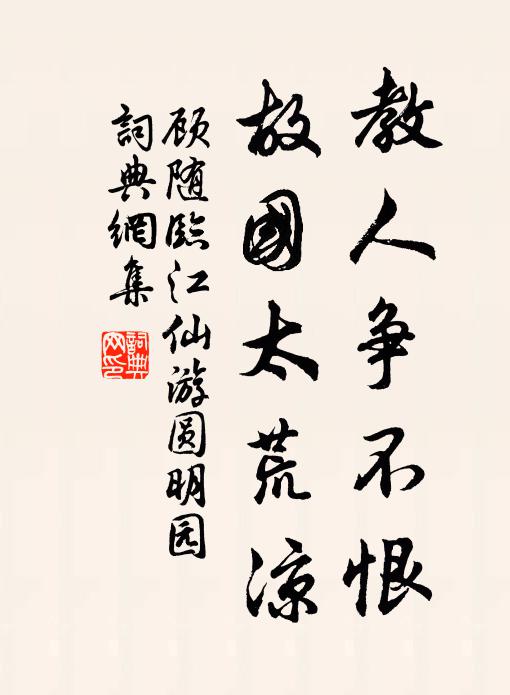 教人争不恨
故國太荒涼
顾随臨江仙游圆明园
詞典網集
詞典网印